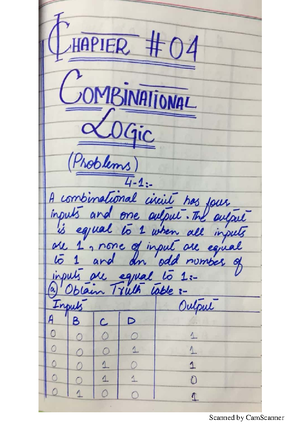 CHAPTER # 04
COMBINATIONAL
LOGIC
(Problems)
4-1:-
A combinational circuit has four
inputs and one output. The output
is equal to 1 when all inputs
are 1, none of input are equal
to 1 and an odd number of
inputs are equal to 1:-
(a) Obtain Truth table :-
Inputs Output
A B C D
0 0 0 0 1
0 0 0 1 1
0 0 1 0 1
0 0 1 1 0
0 1 0 0 1
Scanned by CamScanner